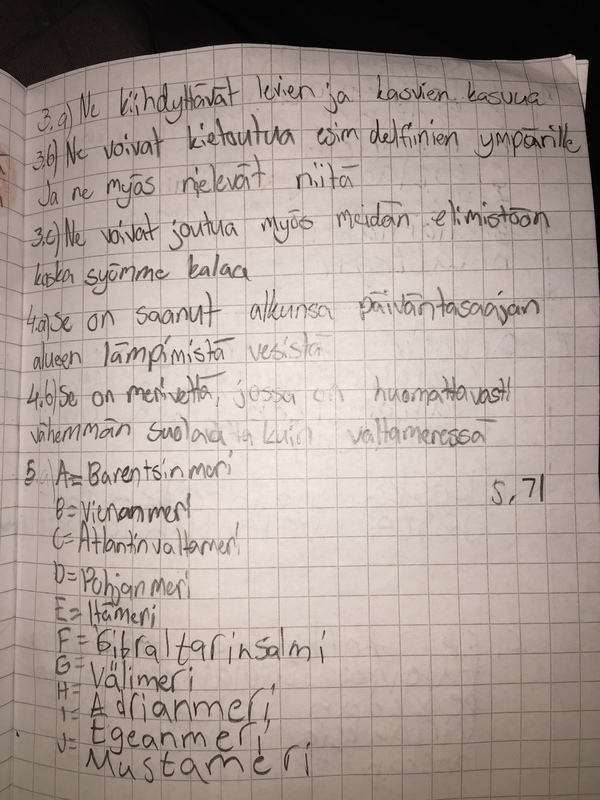 3.a) Ne kiihdyttävät levien ja kasvien kasvua
3.b) Ne voivat kietoutua esim delfiinien ympärille
Ja ne myös nielevät niitä
3.c) Ne voivat joutua myös meidän elimistöön
koska syömme kalaa
4.a) Se on saanut alkunsa päiväntasaajan
alueen lämpimistä vesistä
4.b) Se on merivettä, jossa on huomattavasti
vähemmän suolaa kuin valtameressä
5. A= Barentsinmeri
S. 71
B= Vienanmeri
C= Atlantin valtameri
D= Pohjanmeri
E= Itämeri
F= Gibraltarinsalmi
G= Välimeri
H= Adrianmeri
I= Egeanmeri
J= Mustameri